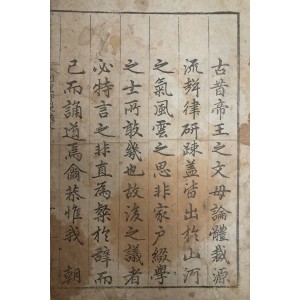 古昔帝王之文毋論體裁源
流詳律研竦盖皆出於山河
之氣風雲之思非家戶綴學
之士所敢幾也故後之議者
必特言之非直為粲於辭而
已而誦道焉龠恭惟我 朝